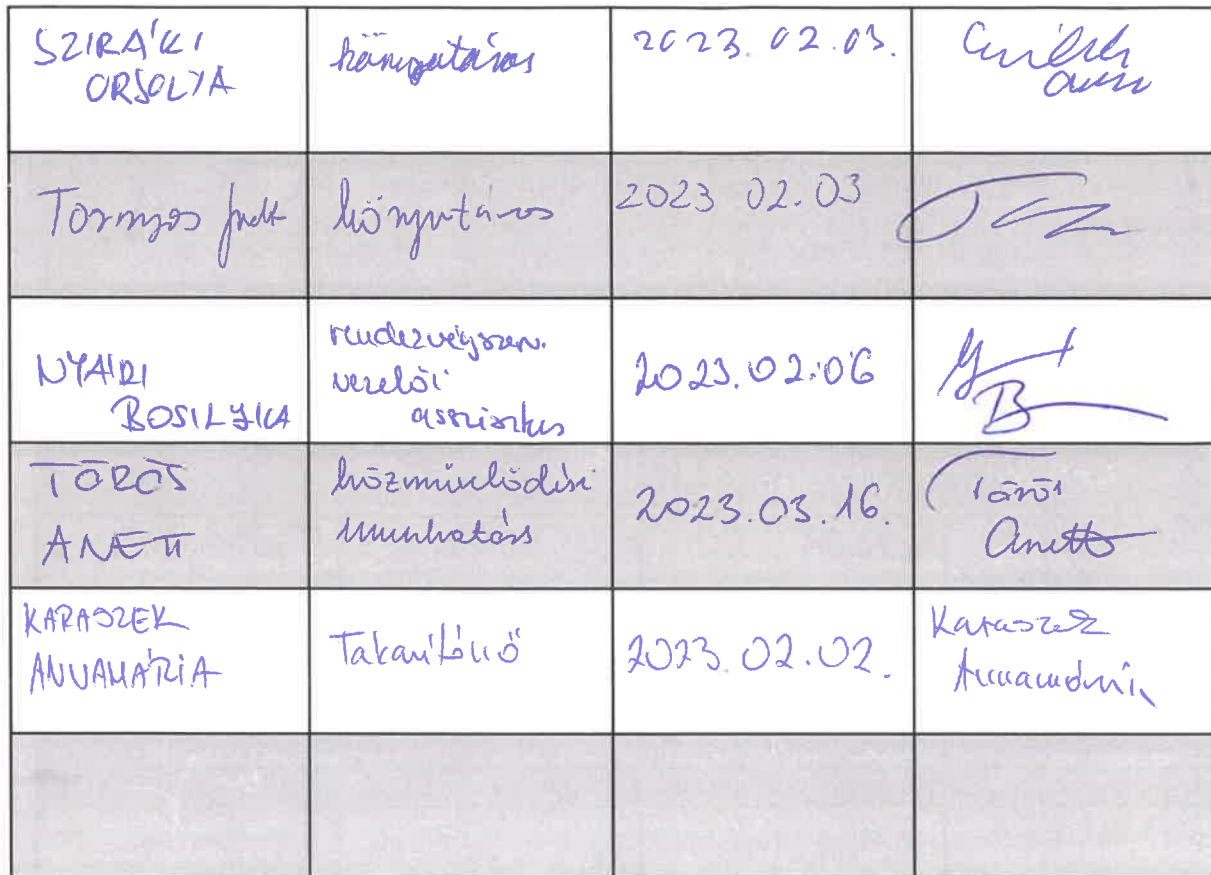 SZIRÁKI
ORSOLYA
könyvtáros
2023.02.03.
Tornyos Judit
könyvtáros
2023 02.03
NYÁRI
BOSILYKA
rendezvényszerv.
vezetői
asszisztens
2023.02.06
TÖRÖS
ANETT
közművelődési
munkatárs
2023.03.16.
Törös
Anett
KARASZEK
ANNAMÁRIA
Takarítónő
2023.02.02.
Karaszek
Annamária